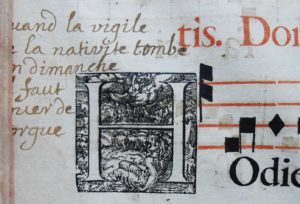 quand la vigile
la nativité tombe
dimanche
faut
orgue
tis. Dom
H
Odie